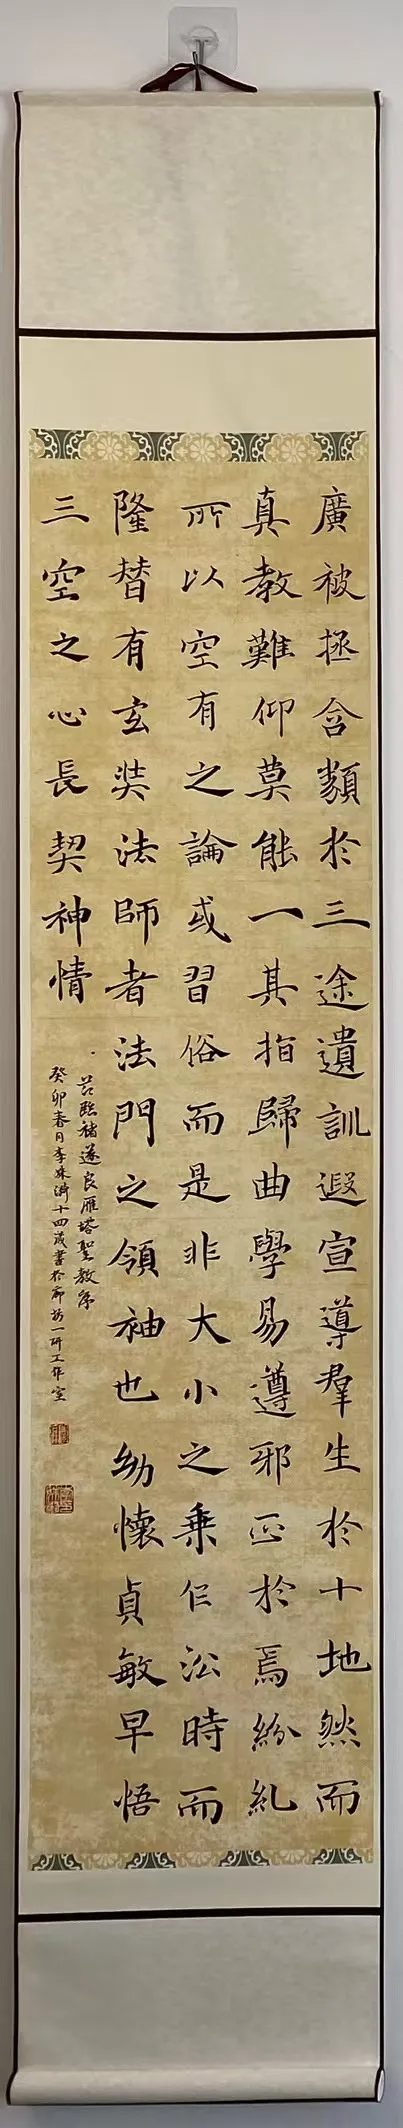 廣被拯含類於三途遺訓遐宣導羣生於十地然而
真教難仰莫能一其指歸曲學易遵邪正於焉紛糺
所以空有之論或習俗而是非大小之乗乍㳂時而
隆替有玄奘法師者法門之領袖也幼懷貞敏早悟
三空之心長契神情
節臨褚遂良雁塔聖教序
癸卯春月李姝漪十四歲書於廊坊一研工作室